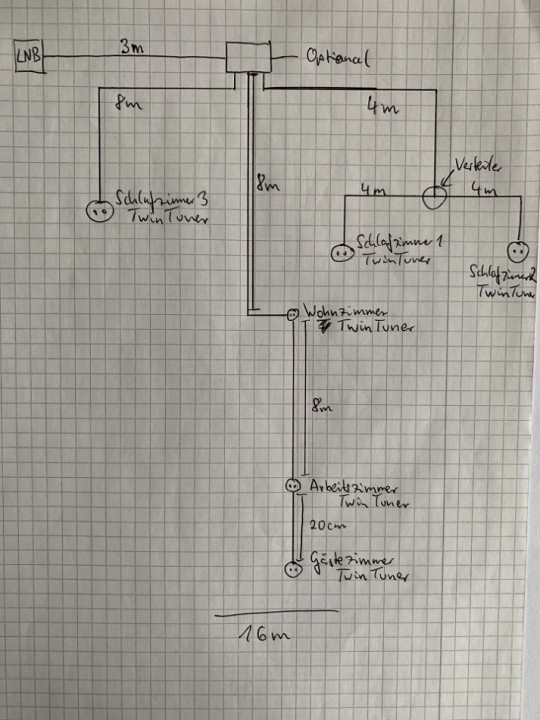 LNB
3m
Optional
8m
4m
Verteiler
8m
4m
4m
Schlafzimmer 3
Twin Tuner
Schlafzimmer 1
Twin Tuner
Schlafzimmer 2
Twin Tuner
Wohnzimmer
Twin Tuner
8m
Arbeitszimmer
Twin Tuner
20cm
Gästezimmer
Twin Tuner
16m